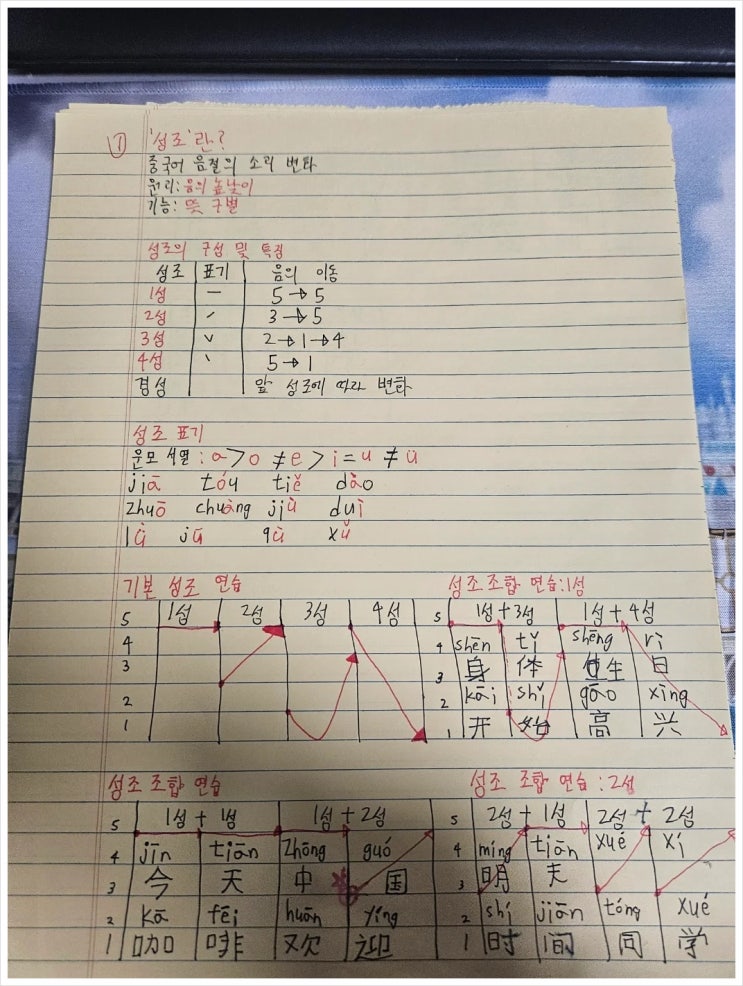 ① '성조'란?
중국어 음절의 소리 변화
원리: 음의 높낮이
기능: 뜻 구별
성조의 구성 및 특징
성조 표기 음의 이동
1성 ― 5→5
2성 ˊ 3→5
3성 ˇ 2→1→4
4성 ˋ 5→1
경성 앞 성조에 따라 변화
성조 표기
운모 서열 : a > o ≠ e > i = u ≠ ü
jiā tóu tiě dào
zhuō chuàng jiù duì
lǜ jū qù xǔ
기본 성조 연습
5 1성 2성 3성 4성
4
3
2
1
성조 조합 연습:1성
5 1성+3성 1성+4성
4 shēn tǐ shēng rì
3 身 体 生 日
2 kāi shǐ gāo xìng
1 开 始 高 兴
성조 조합 연습
5 1성 + 1성 1성 + 2성
4 jīn tiān zhōng guó
3 今 天 中 国
2 kā fēi huān yíng
1 咖 啡 欢 迎
성조 조합 연습 : 2성
5 2성 + 1성 2성 + 2성
4 míng tiān xué xí
3 明 天
2 shí jiān tóng xué
1 时 间 同 学